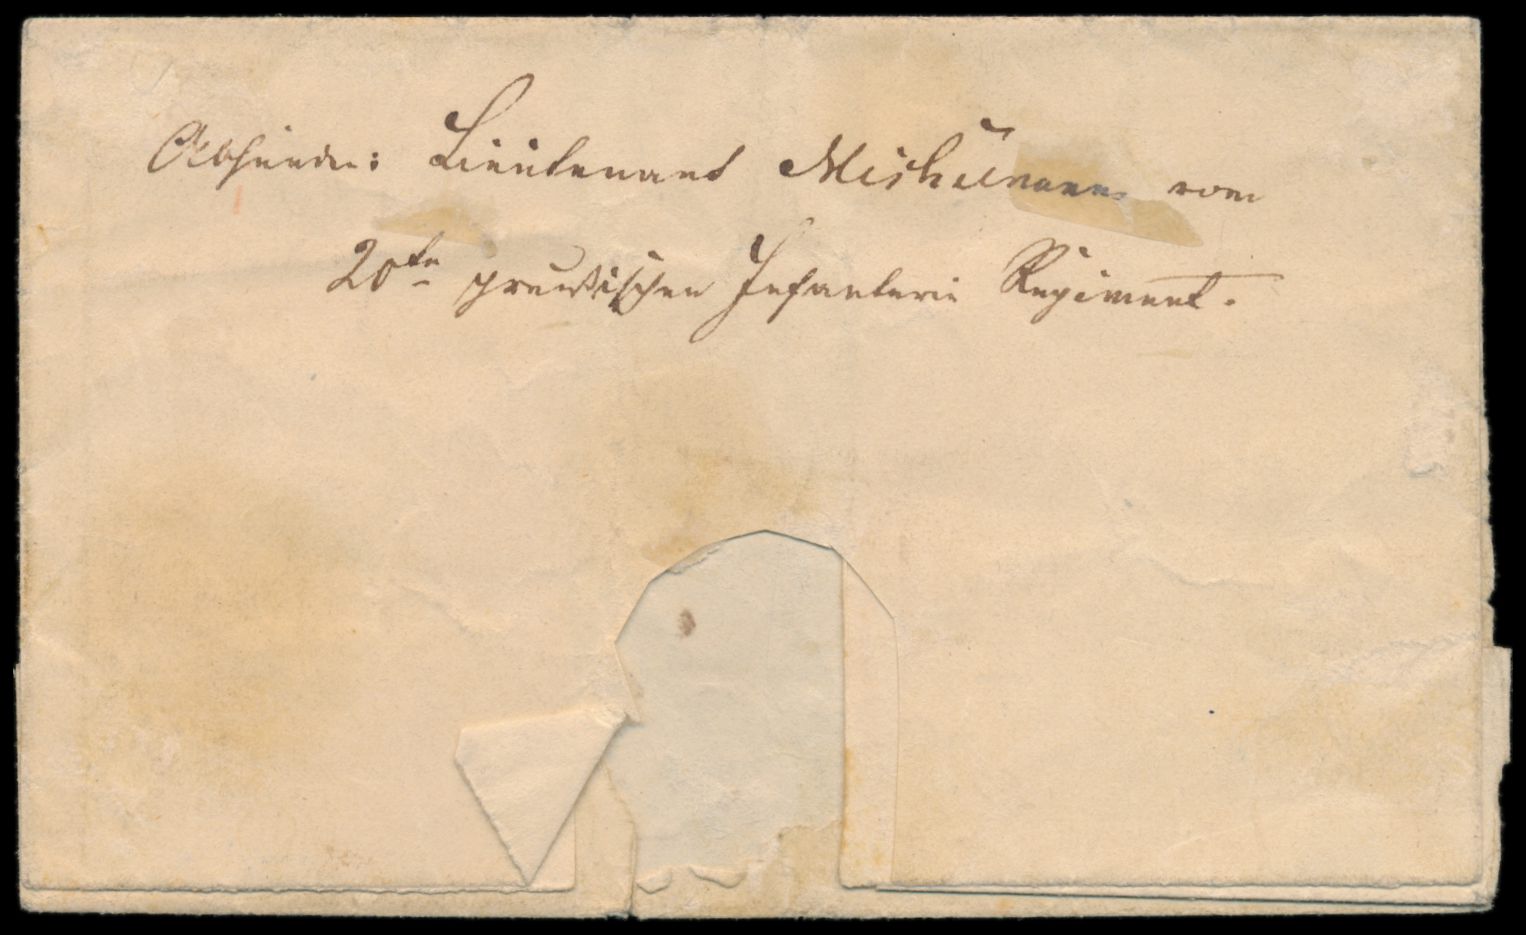 Absender: Lieutenant Michelmann vom
20ten preußischen Infanterie Regiment.